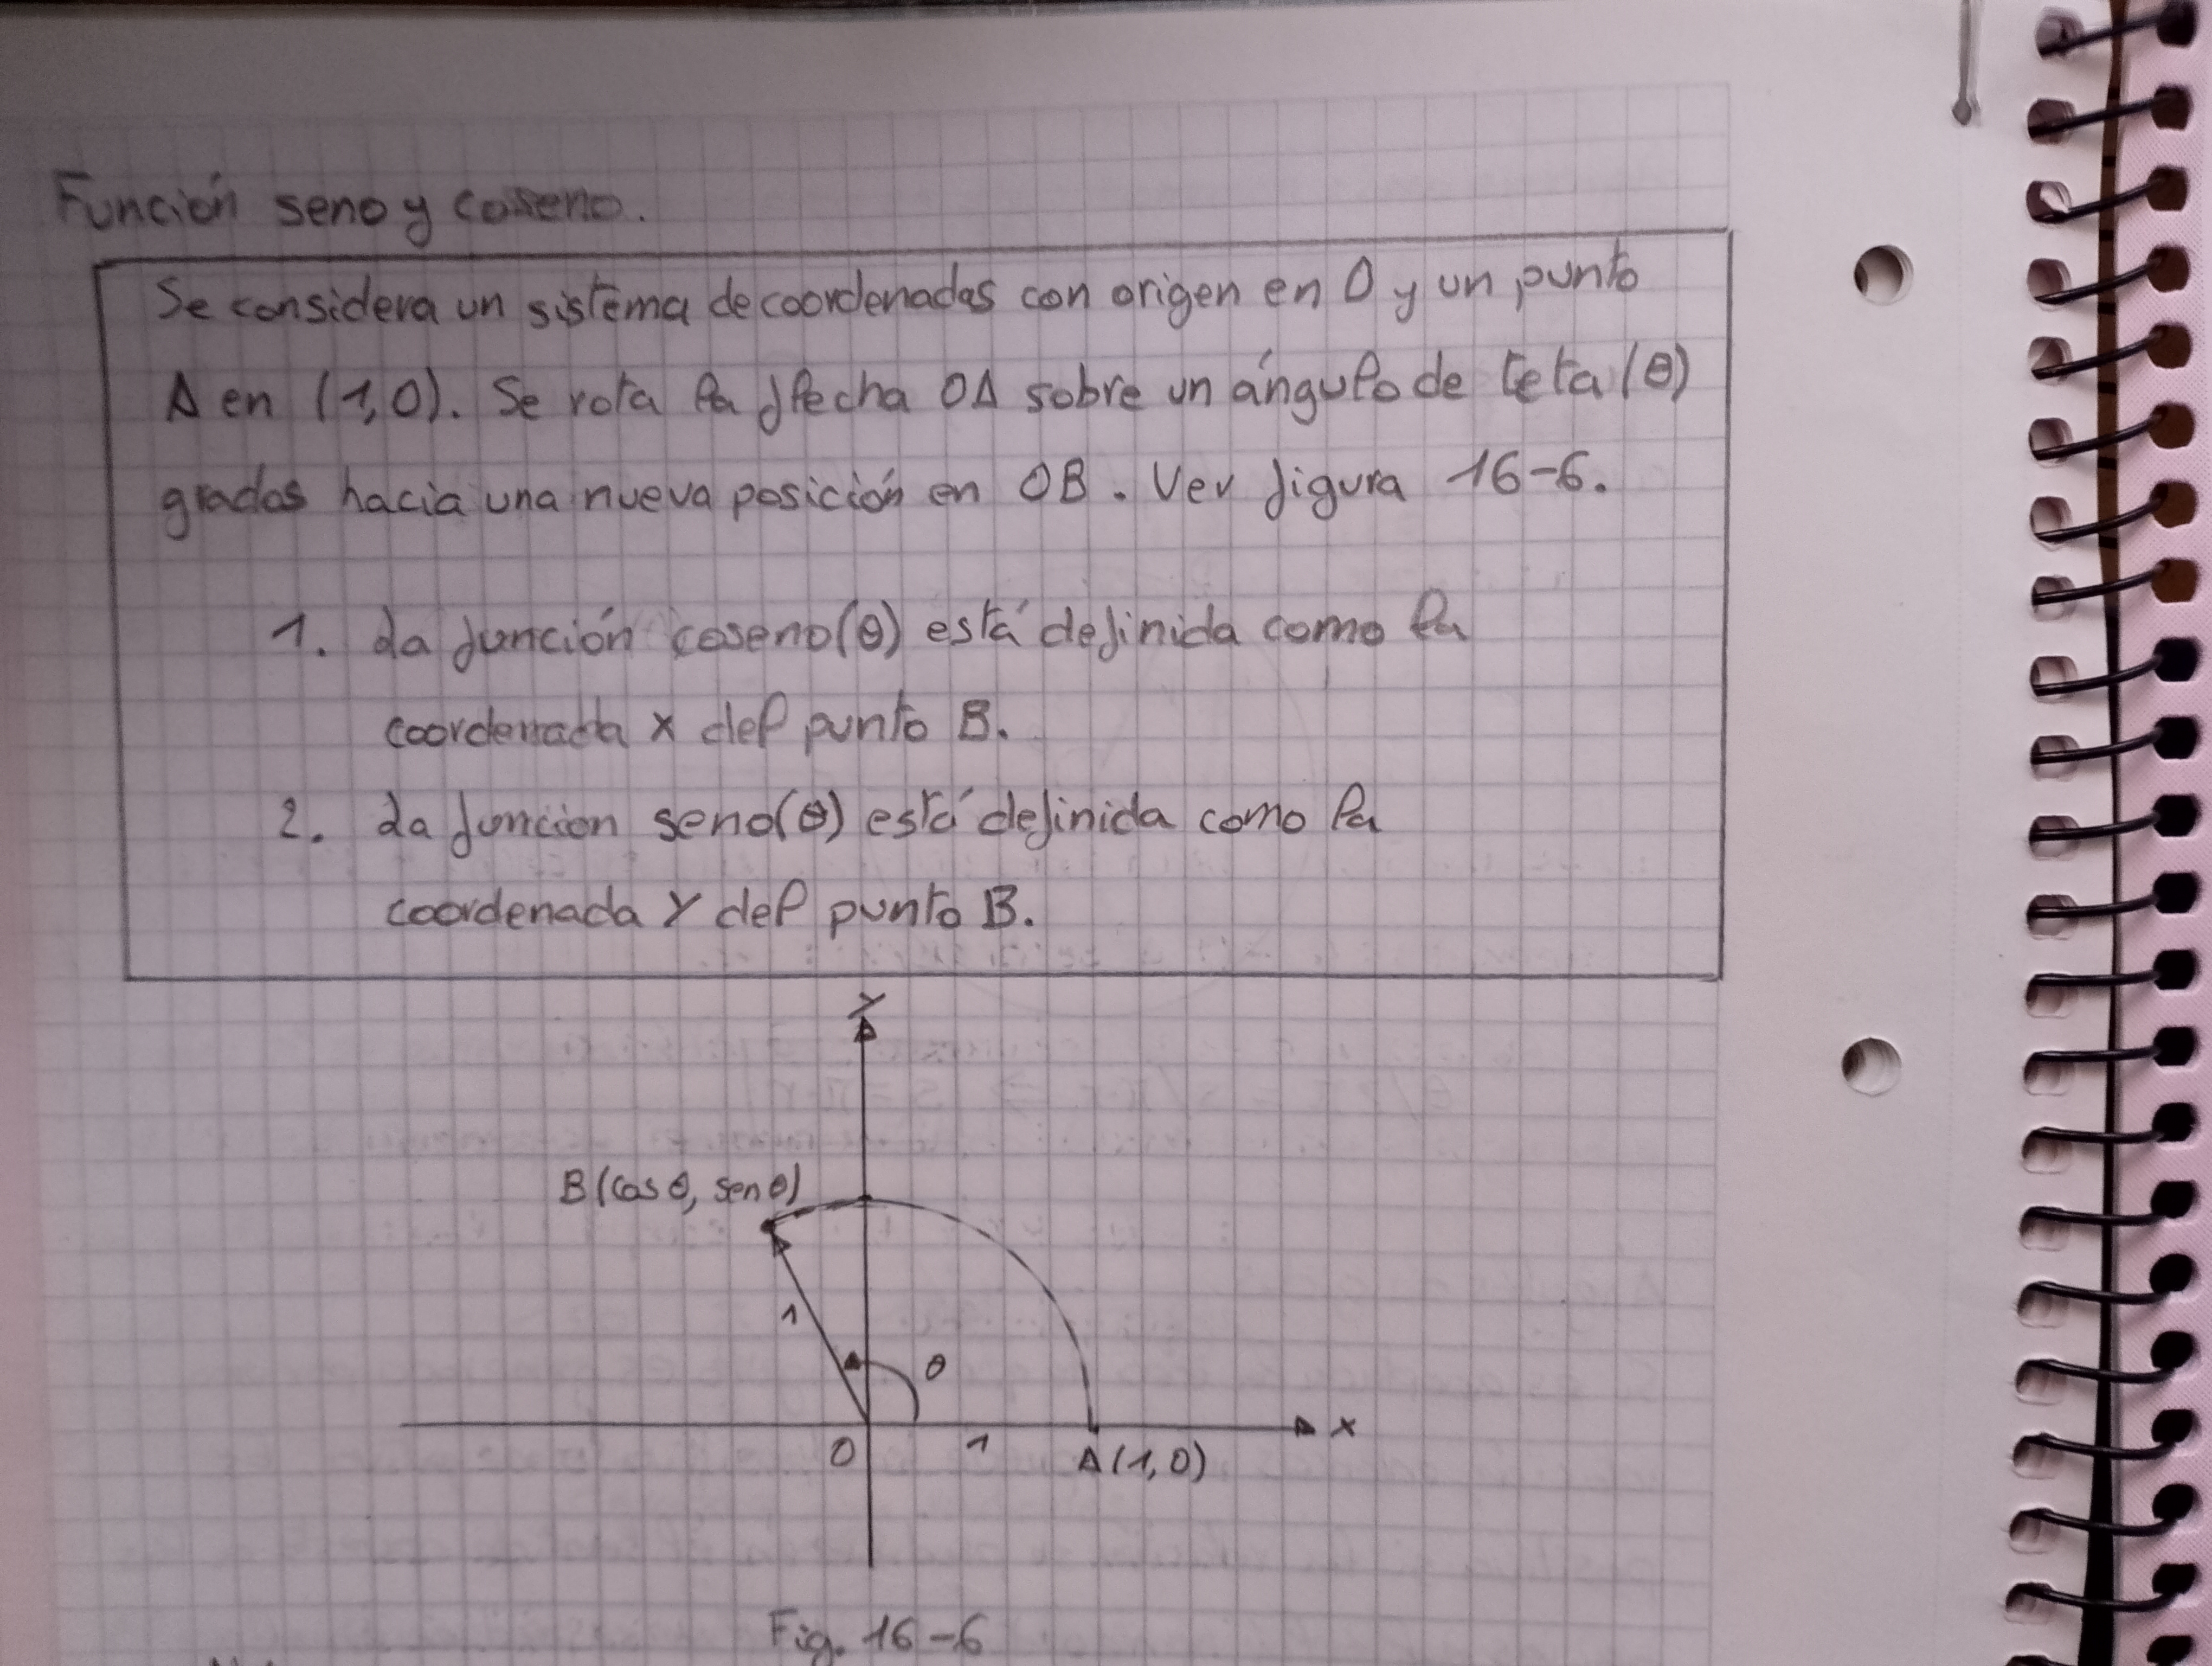 Función seno y coseno.
Se considera un sistema de coordenadas con origen en O y un punto
A en (1,0). Se rota la flecha OA sobre un ángulo de teta (θ)
grados hacia una nueva posición en OB. Ver figura 16-6.
1. La función coseno(θ) está definida como la
coordenada X del punto B.
2. La función seno(θ) está definida como la
coordenada Y del punto B.
Y
B(cos θ, sen θ)
1
θ
X
O
1
A(1,0)
Fig. 16-6